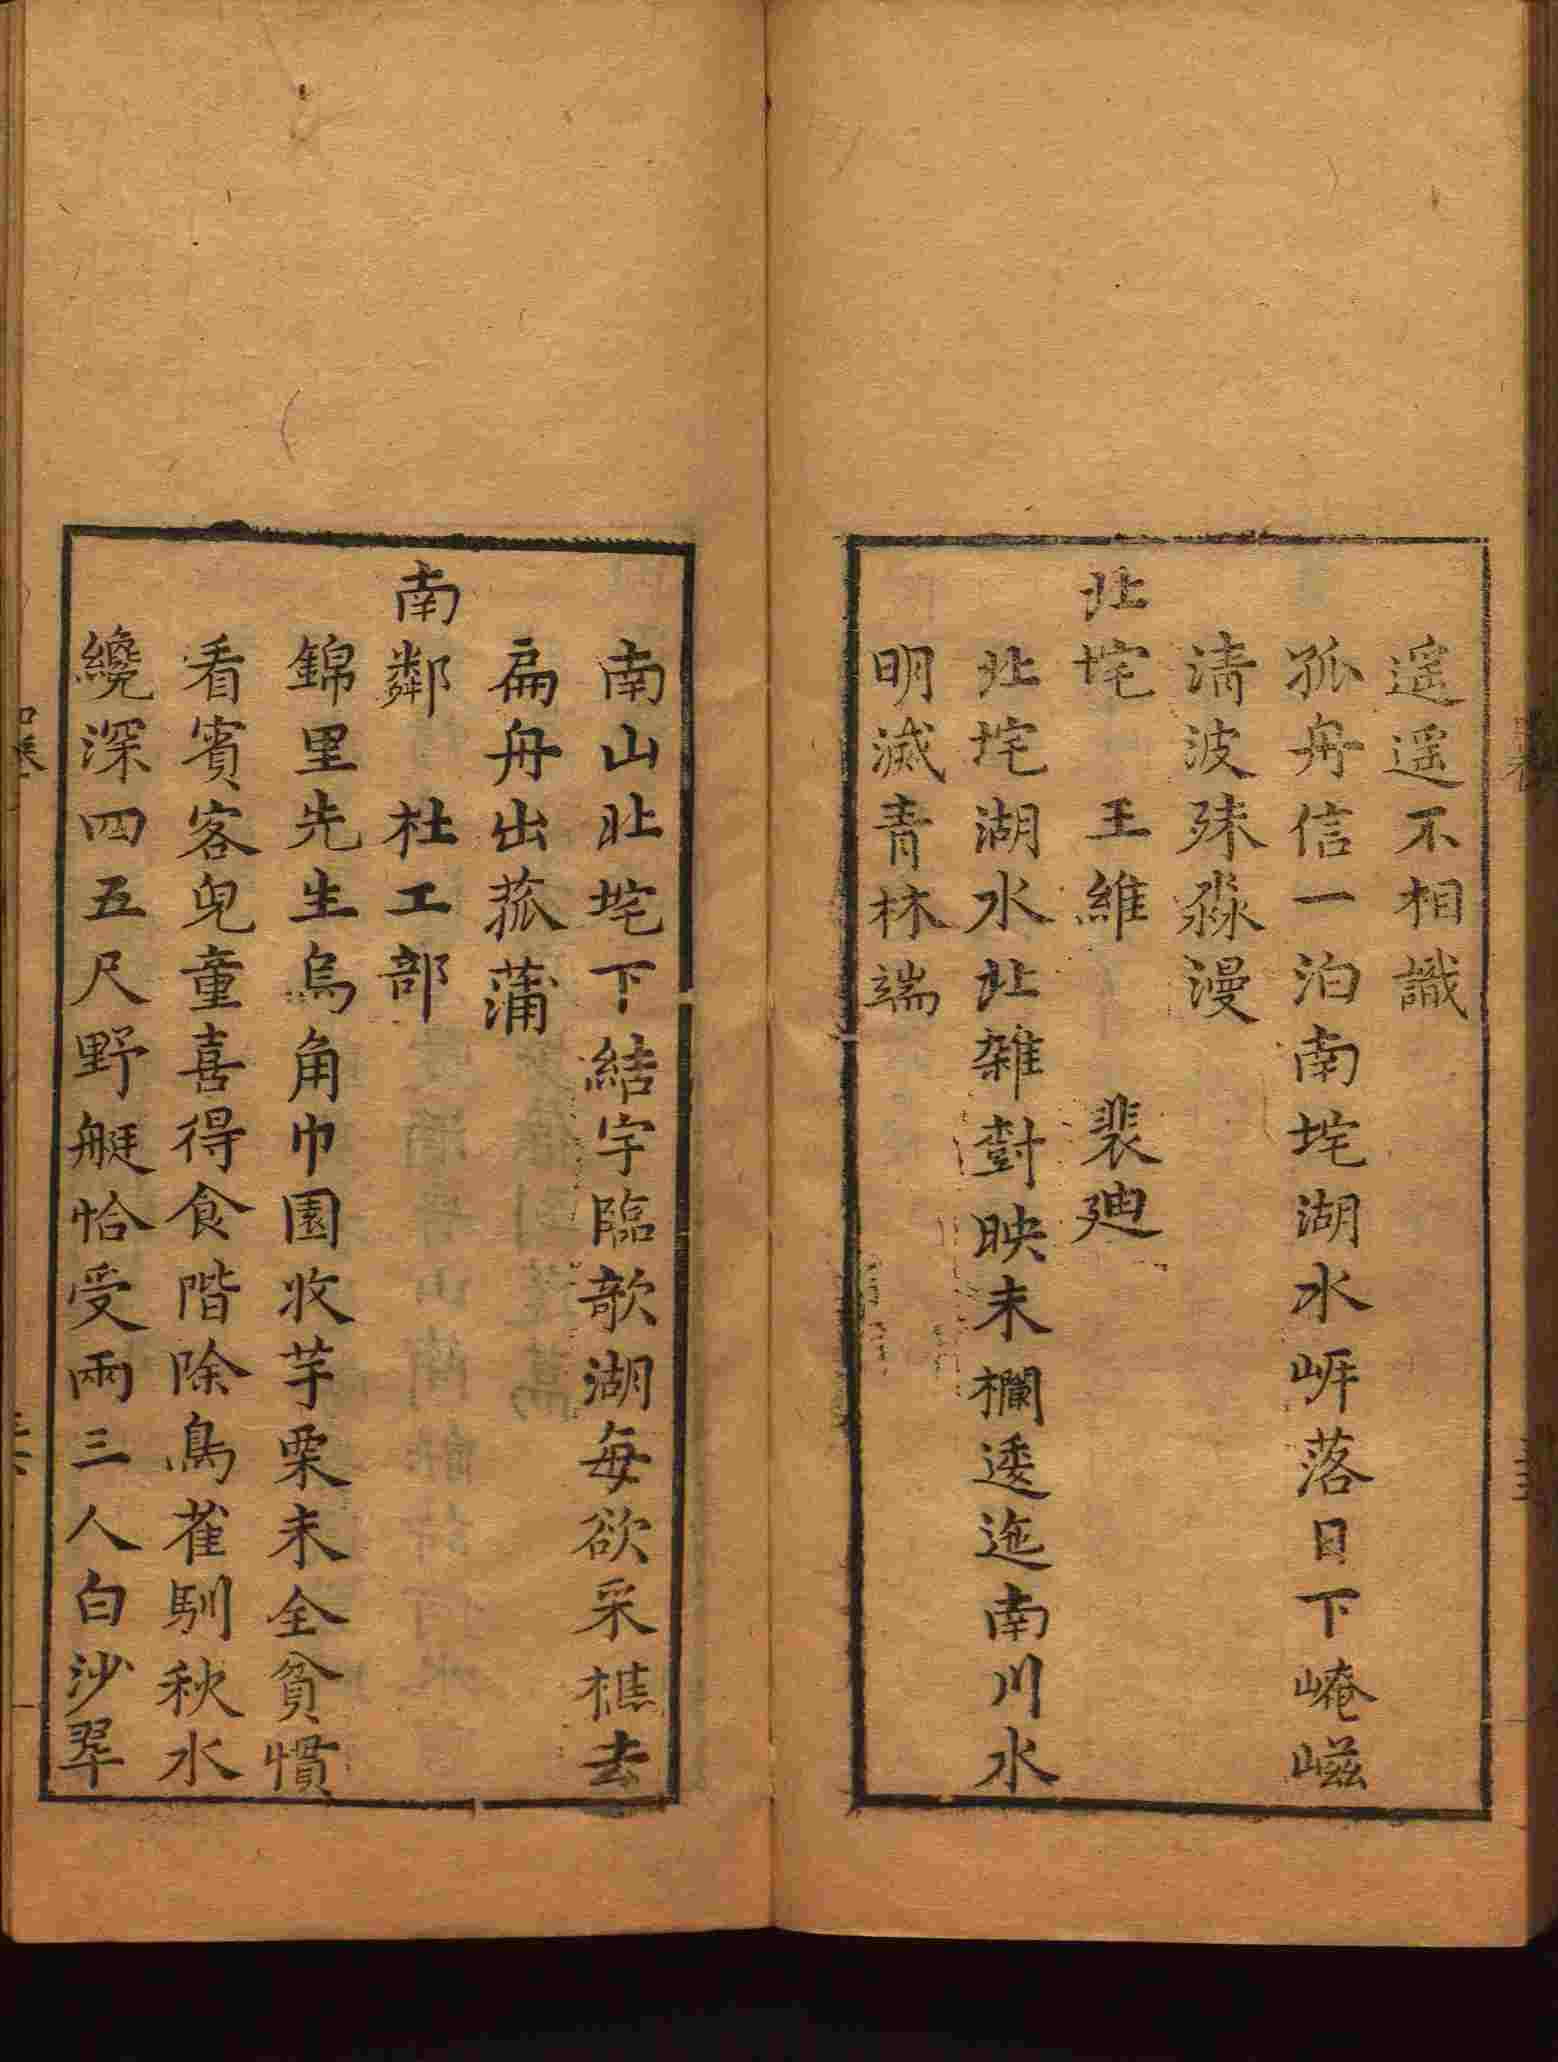 遥遥不相識
孤舟信一泊南垞湖水㟁落日下崦嵫
清波殊淼漫
北垞　王維　　裴廸
北垞湖水北雜對映未欄逶迤南川水
明滅青林端
南山北垞下結宇臨欹湖每欲采樵去
扁舟出菰蒲
南鄰　杜工部
錦里先生烏角巾園收芋栗未全貧慣
看賓客兒童喜得食階除鳥雀馴秋水
纔深四五尺野艇恰受兩三人白沙翠